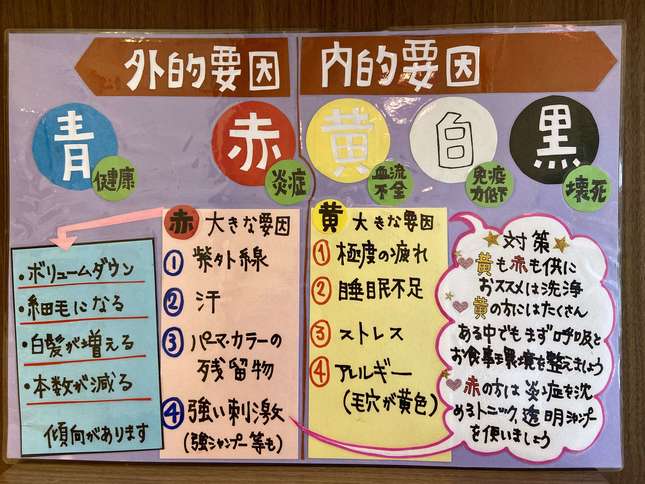 外的要因
内的要因
青
健康
赤
炎症
黄
血流
不全
白
免疫
力低下
黒
壊死
・ボリュームダウン
・細毛になる
・白髪が増える
・本数が減る
傾向があります
赤 大きな要因
① 紫外線
② 汗
③ パーマ・カラーの
残留物
④ 強い刺激
(強シャンプー等も)
黄 大きな要因
① 極度の疲れ
② 睡眠不足
③ ストレス
④ アレルギー
(毛穴が黄色)
★対策★
♥黄も赤も供に
おススメは洗浄
♥黄の方にはたくさん
ある中でもまず呼吸と
お食事環境を整えましょう
♥赤の方は炎症を沈
めるトニック、透明シャンプー
を使いましょう